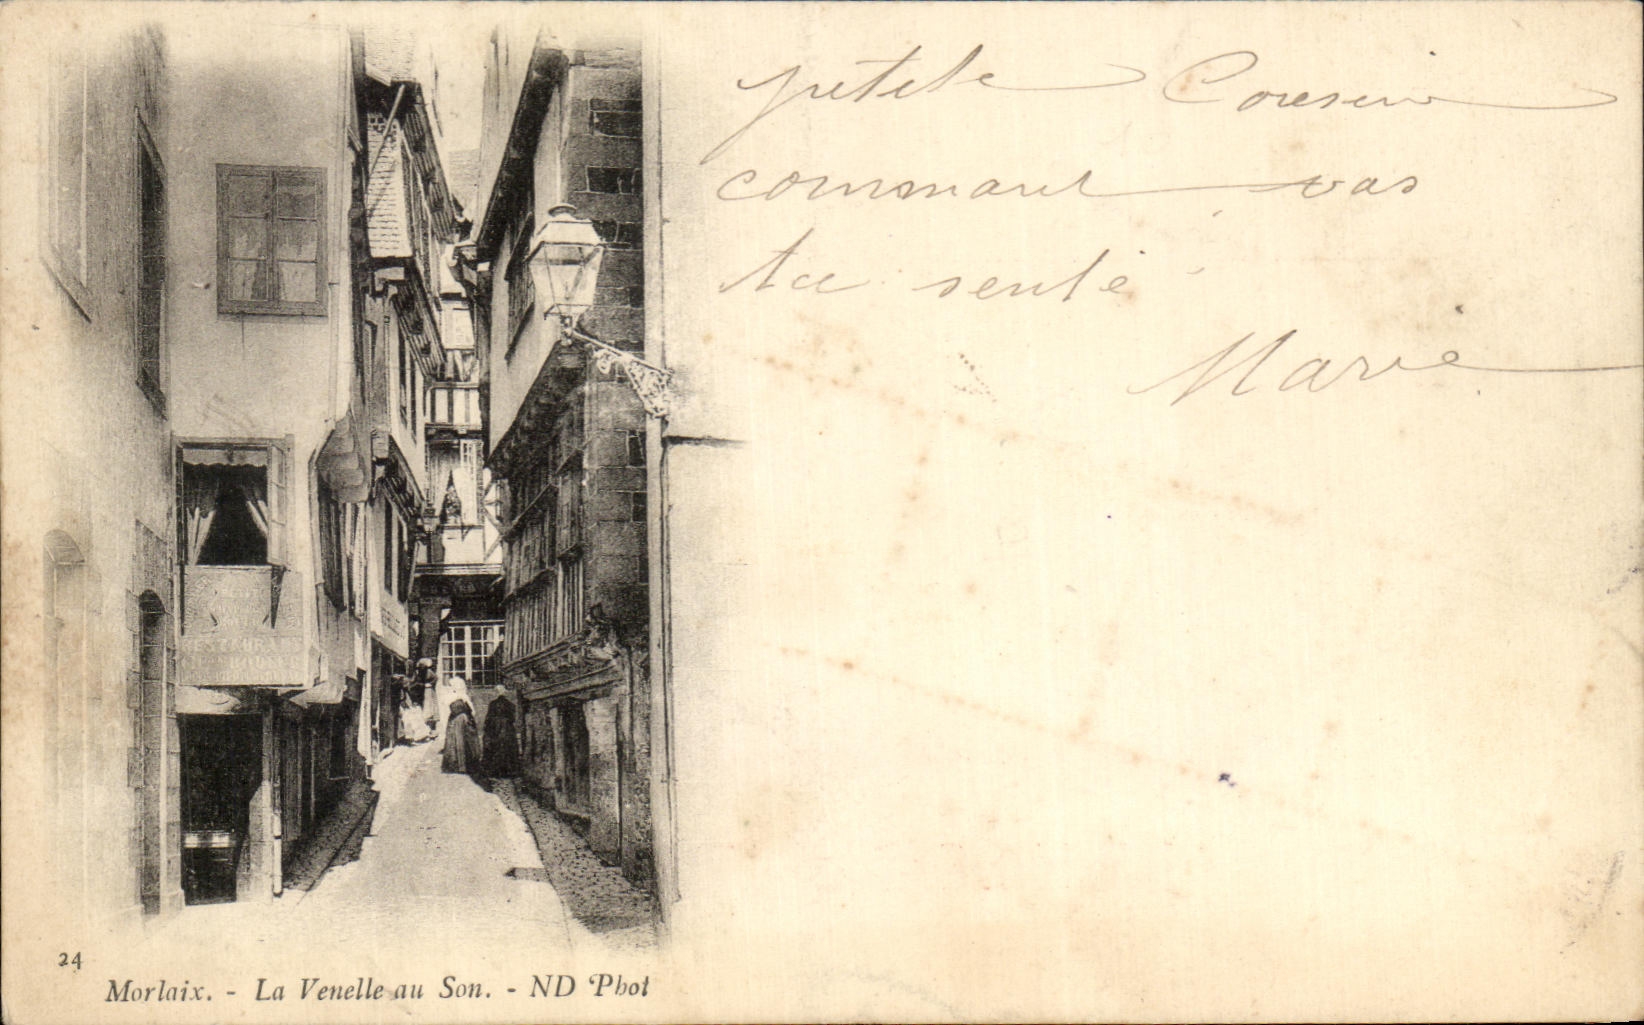 petite Cousin
commant vas
ta senté
Marie
RESTAURANT
24
Morlaix. - La Venelle au Son. - ND Phot